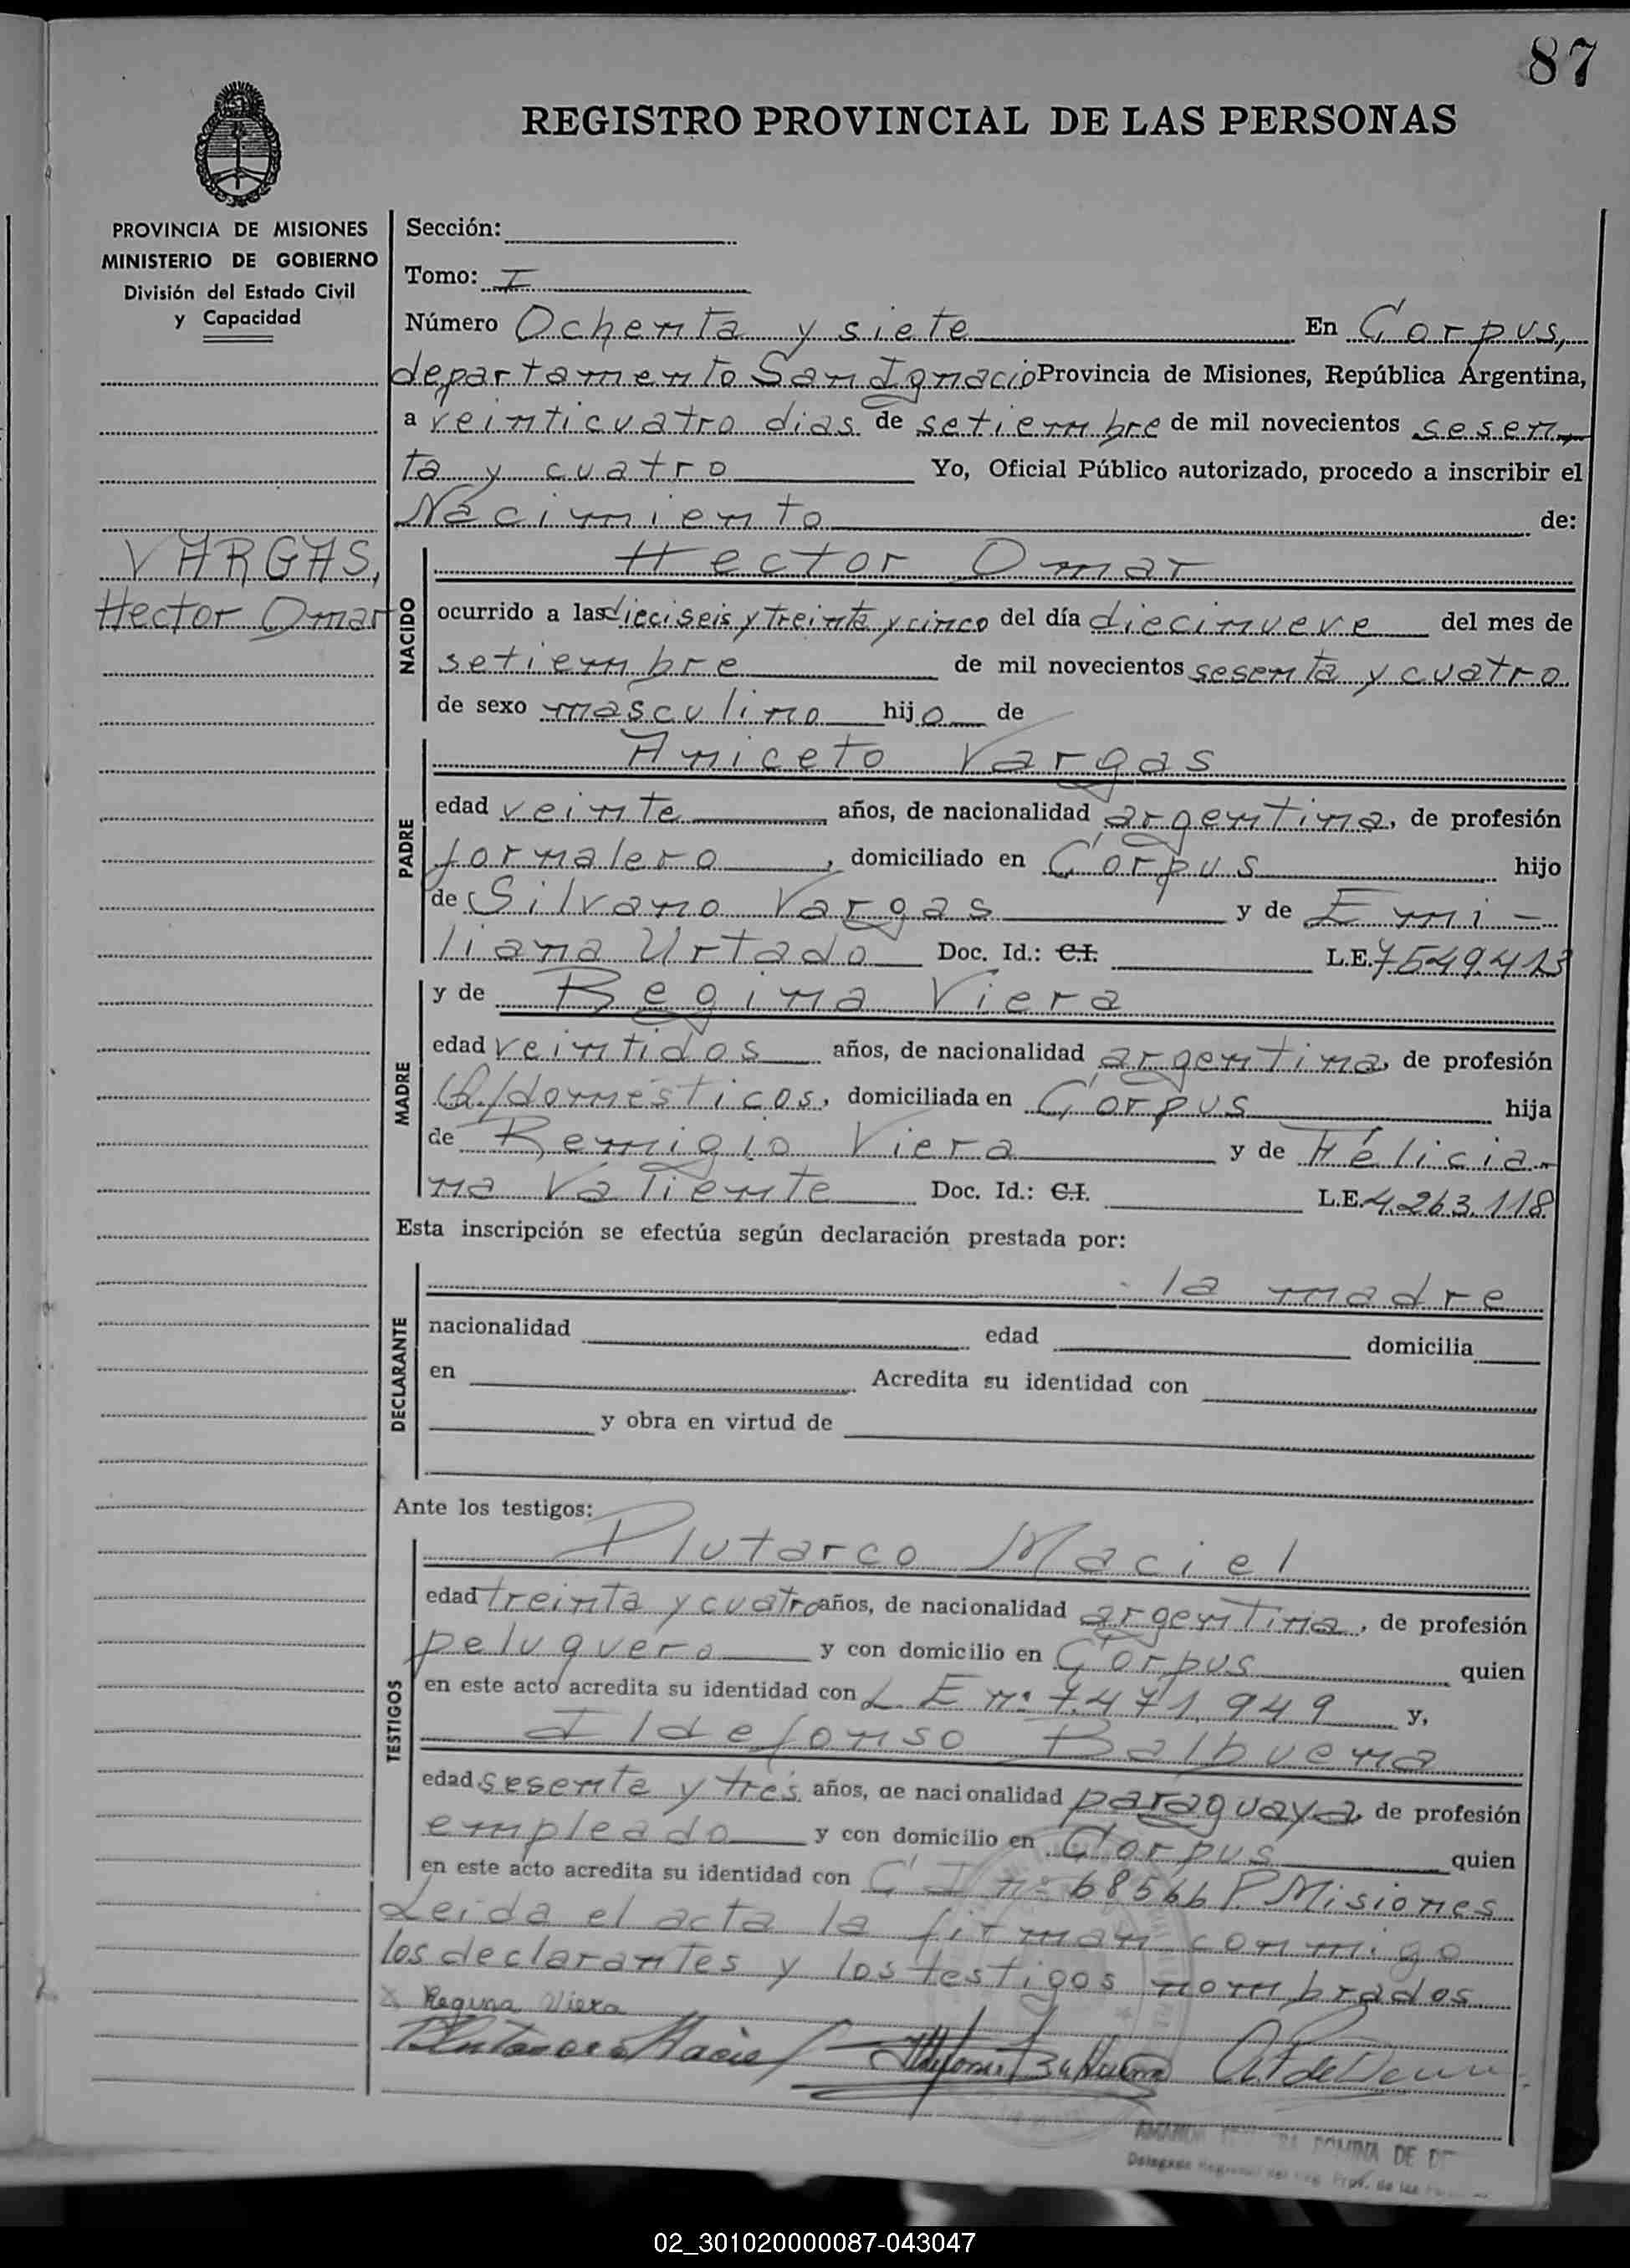 87
REGISTRO PROVINCIAL DE LAS PERSONAS
PROVINCIA DE MISIONES
MINISTERIO DE GOBIERNO
División del Estado Civil
y Capacidad
VARGAS,
Hector Omar
Sección:
Tomo: I
Número Ochenta y siete En Corpus,
departamento San Ignacio Provincia de Misiones, República Argentina,
a veinticuatro dias de setiembre de mil novecientos sesen-
ta y cuatro Yo, Oficial Público autorizado, procedo a inscribir el
Nacimiento de:
NACIDO
Hector Omar
ocurrido a las dieciseis y treinta y cinco del día diecinueve del mes de
setiembre de mil novecientos sesenta y cuatro
de sexo masculino hijo de
PADRE
Aniceto Vargas
edad veinte años, de nacionalidad argentina, de profesión
jornalero, domiciliado en Corpus hijo
de Silvano Vargas y de Emi-
liana Urtado Doc. Id.: C.I. L.E. 7.549.413
MADRE
y de Regina Viera
edad veintidos años, de nacionalidad argentina, de profesión
Q/domésticos, domiciliada en Corpus hija
de Remigio Viera y de Félicia-
na Valiente Doc. Id.: C.I. L.E. 4.263.118
Esta inscripción se efectúa según declaración prestada por:
DECLARANTE
la madre
nacionalidad edad domicilia
en Acredita su identidad con
y obra en virtud de
Ante los testigos:
TESTIGOS
Plutarco Maciel
edad treinta y cuatro años, de nacionalidad argentina, de profesión
peluquero y con domicilio en Corpus quien
en este acto acredita su identidad con L E nº 7.471.949 y,
Ildefonso Balbuena
edad sesenta y tres años, de nacionalidad paraguaya, de profesión
empleado y con domicilio en Corpus quien
en este acto acredita su identidad con C I nº 68566 P. Misiones
Leida el acta la firman conmigo
los declarantes y los testigos nombrados
x Regina Viera
Plutarco Maciel Ildefonso Balbuena
DOMINA DE
Prov. de las
02_301020000087-043047